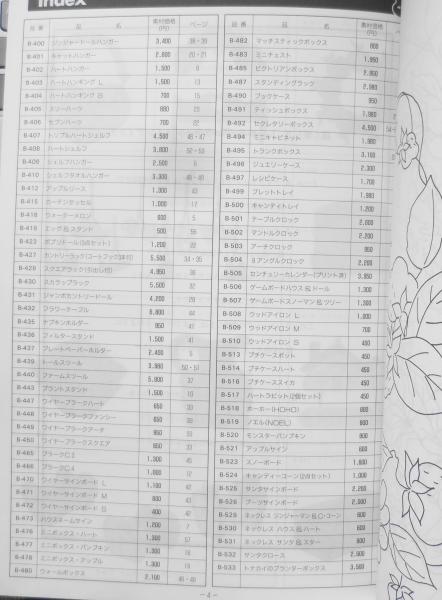 Index
品番 品名 素材価格(円) ページ
B-400 ジンジャードールハンガー 3,400 38・39
B-401 キャットハンガー 2,800 20・21
B-402 ハートハンガー 1,500
B-403 ハートハンキング L 1,500 13
B-404 ハートハンキング S 700 15
B-405 スリーハーツ 880 23
B-406 セブンハーツ 700 22
B-407 トリプルハートシェルフ 4,500 46・47
B-408 ハートシェルフ 3,800 52・53
B-409 シェルフハンガー 2,500 6
B-410 シェルフタオルハンガー 3,300
B-412 アップルジース 1,300 43
B-415 カーテンタッセル 1,000 17
B-418 ウォーターメロン 600 5
B-419 エッグ&スタンド 500 56
B-423 ボブリドール(3点セット) 1,200 22
B-427 カントリーラック(コートフック3本付) 5,500 34・35
B-428 スクエアラック(引出し付) 4,950 36
B-430 スカラップラック 5,500 32
B-431 ジャンボカントリードール 4,200 29
B-432 フラワーケーブル 6,800 44
B-435 ナプキンホルダー 950 41
B-436 フィルタースタンド 1,500 41
B-437 プレートペーパーホルダー 2,400 5
B-439 トールスツール 3,980 50・51
B-440 ファームスツール 5,800 37
B-443 プラントスタンド 1,500 10
B-447 ワイヤープラークハート 650 33
B-448 ワイヤープラークファンシー 650 39
B-449 ワイヤープラークアーチ 950 33
B-450 ワイヤープラークスクエア 850 33
B-465 プラークC3 1,300 45
B-466 プラークC4 1,000 12
B-470 ワイヤーサインボード L 1,100 42
B-471 ワイヤーサインボード M 800 43
B-472 ワイヤーサインボード S 400 42
B-473 ハウスネームサイン 1,200 7
B-476 ミニボックス・ハート 1,300 57
B-477 ミニボックス・パンプキン 1,300 16
B-478 ミニボックス・アップル 1,300 15
B-480 ウォールボックス 2,100 48・49
品番 品名 素材価格(円)
B-482 マッチスティックボックス 800
B-483 ミニチェスト 1,950
B-485 ビクトリアンボックス 2,800
B-487 スタンディングラック 2,980
B-490 ブックケース 950
B-491 ティッシュボックス 1,980
B-492 セクレタリーボックス 4,500
B-494 ミニキャビネット 1,980
B-495 トランクボックス 3,100
B-496 ジュエリーケース 2,300
B-497 レシピケース 1,700
B-499 ブレットトレイ 1,980
B-500 キャンディトレイ 1,200
B-501 テーブルクロック 2,800
B-502 マントルクロック 2,200
B-503 アーチクロック 950
B-504 8アングルクロック 2,200
B-505 センチュリーカレンダー(プリント済) 3,950
B-506 ゲームボードハウス&ドール 1,300
B-507 ゲームボードスノーマン&ツリー 1,300
B-508 ウッドアイロン L 1,000
B-509 ウッドアイロン M 700
B-510 ウッドアイロン S 400
B-513 プチケースポット 450
B-514 プチケースハート 450
B-516 プチケーススイカ 450
B-517 ハートラビット(2個セット) 450
B-518 ホーホー(HOHO) 800
B-519 ノエル(NOEL) 800
B-520 モンスターパンプキン 800
B-521 アップルサイン 600
B-523 スノーボード 1,800
B-524 キャンディーコーン(2点セット) 1,000
B-525 サンタサインボード 2,200
B-526 ブーツサインボード 2,000
B-529 ネックレス ジンジャーマン&C・コーン 600
B-530 ネックレス ハウス&ハート 600
B-531 ネックレス サンタ&スター 600
B-532 サンタクロース 2,600
B-533 トナカイのプランターボックス 3,500
－4－